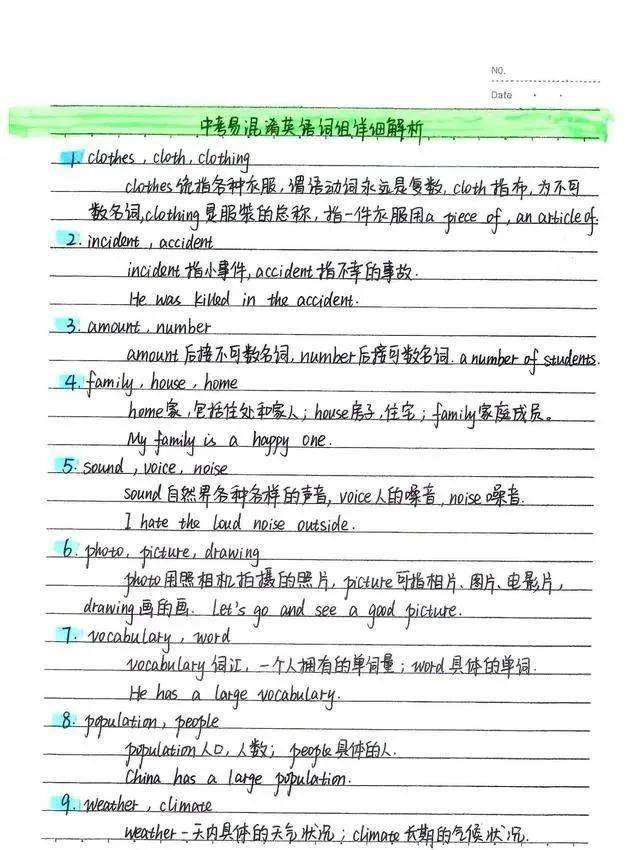 NO.
Date
中考易混淆英语词组详细解析
1. clothes, cloth, clothing
clothes统指各种衣服,谓语动词永远是复数, cloth指布,为不可
数名词,clothing是服装的总称,指一件衣服用a piece of, an article of.
2. incident, accident
incident指小事件,accident指不幸的事故.
He was killed in the accident.
3. amount, number
amount后接不可数名词,number后接可数名词. a number of students.
4. family, house, home
home家,包括住处和家人;house房子,住宅;family家庭成员。
My family is a happy one.
5. sound, voice, noise
sound自然界各种各样的声音, voice人的嗓音,noise噪音.
I hate the loud noise outside.
6. photo, picture, drawing
photo用照相机拍摄的照片, picture可指相片、图片、电影片,
drawing画的画. Let's go and see a good picture.
7. vocabulary, word
vocabulary词汇,一个人拥有的单词量;word具体的单词.
He has a large vocabulary.
8. population, people
population人口,人数; people具体的人.
China has a large population.
9. weather, climate
weather一天内具体的天气状况;climate长期的气候状况.